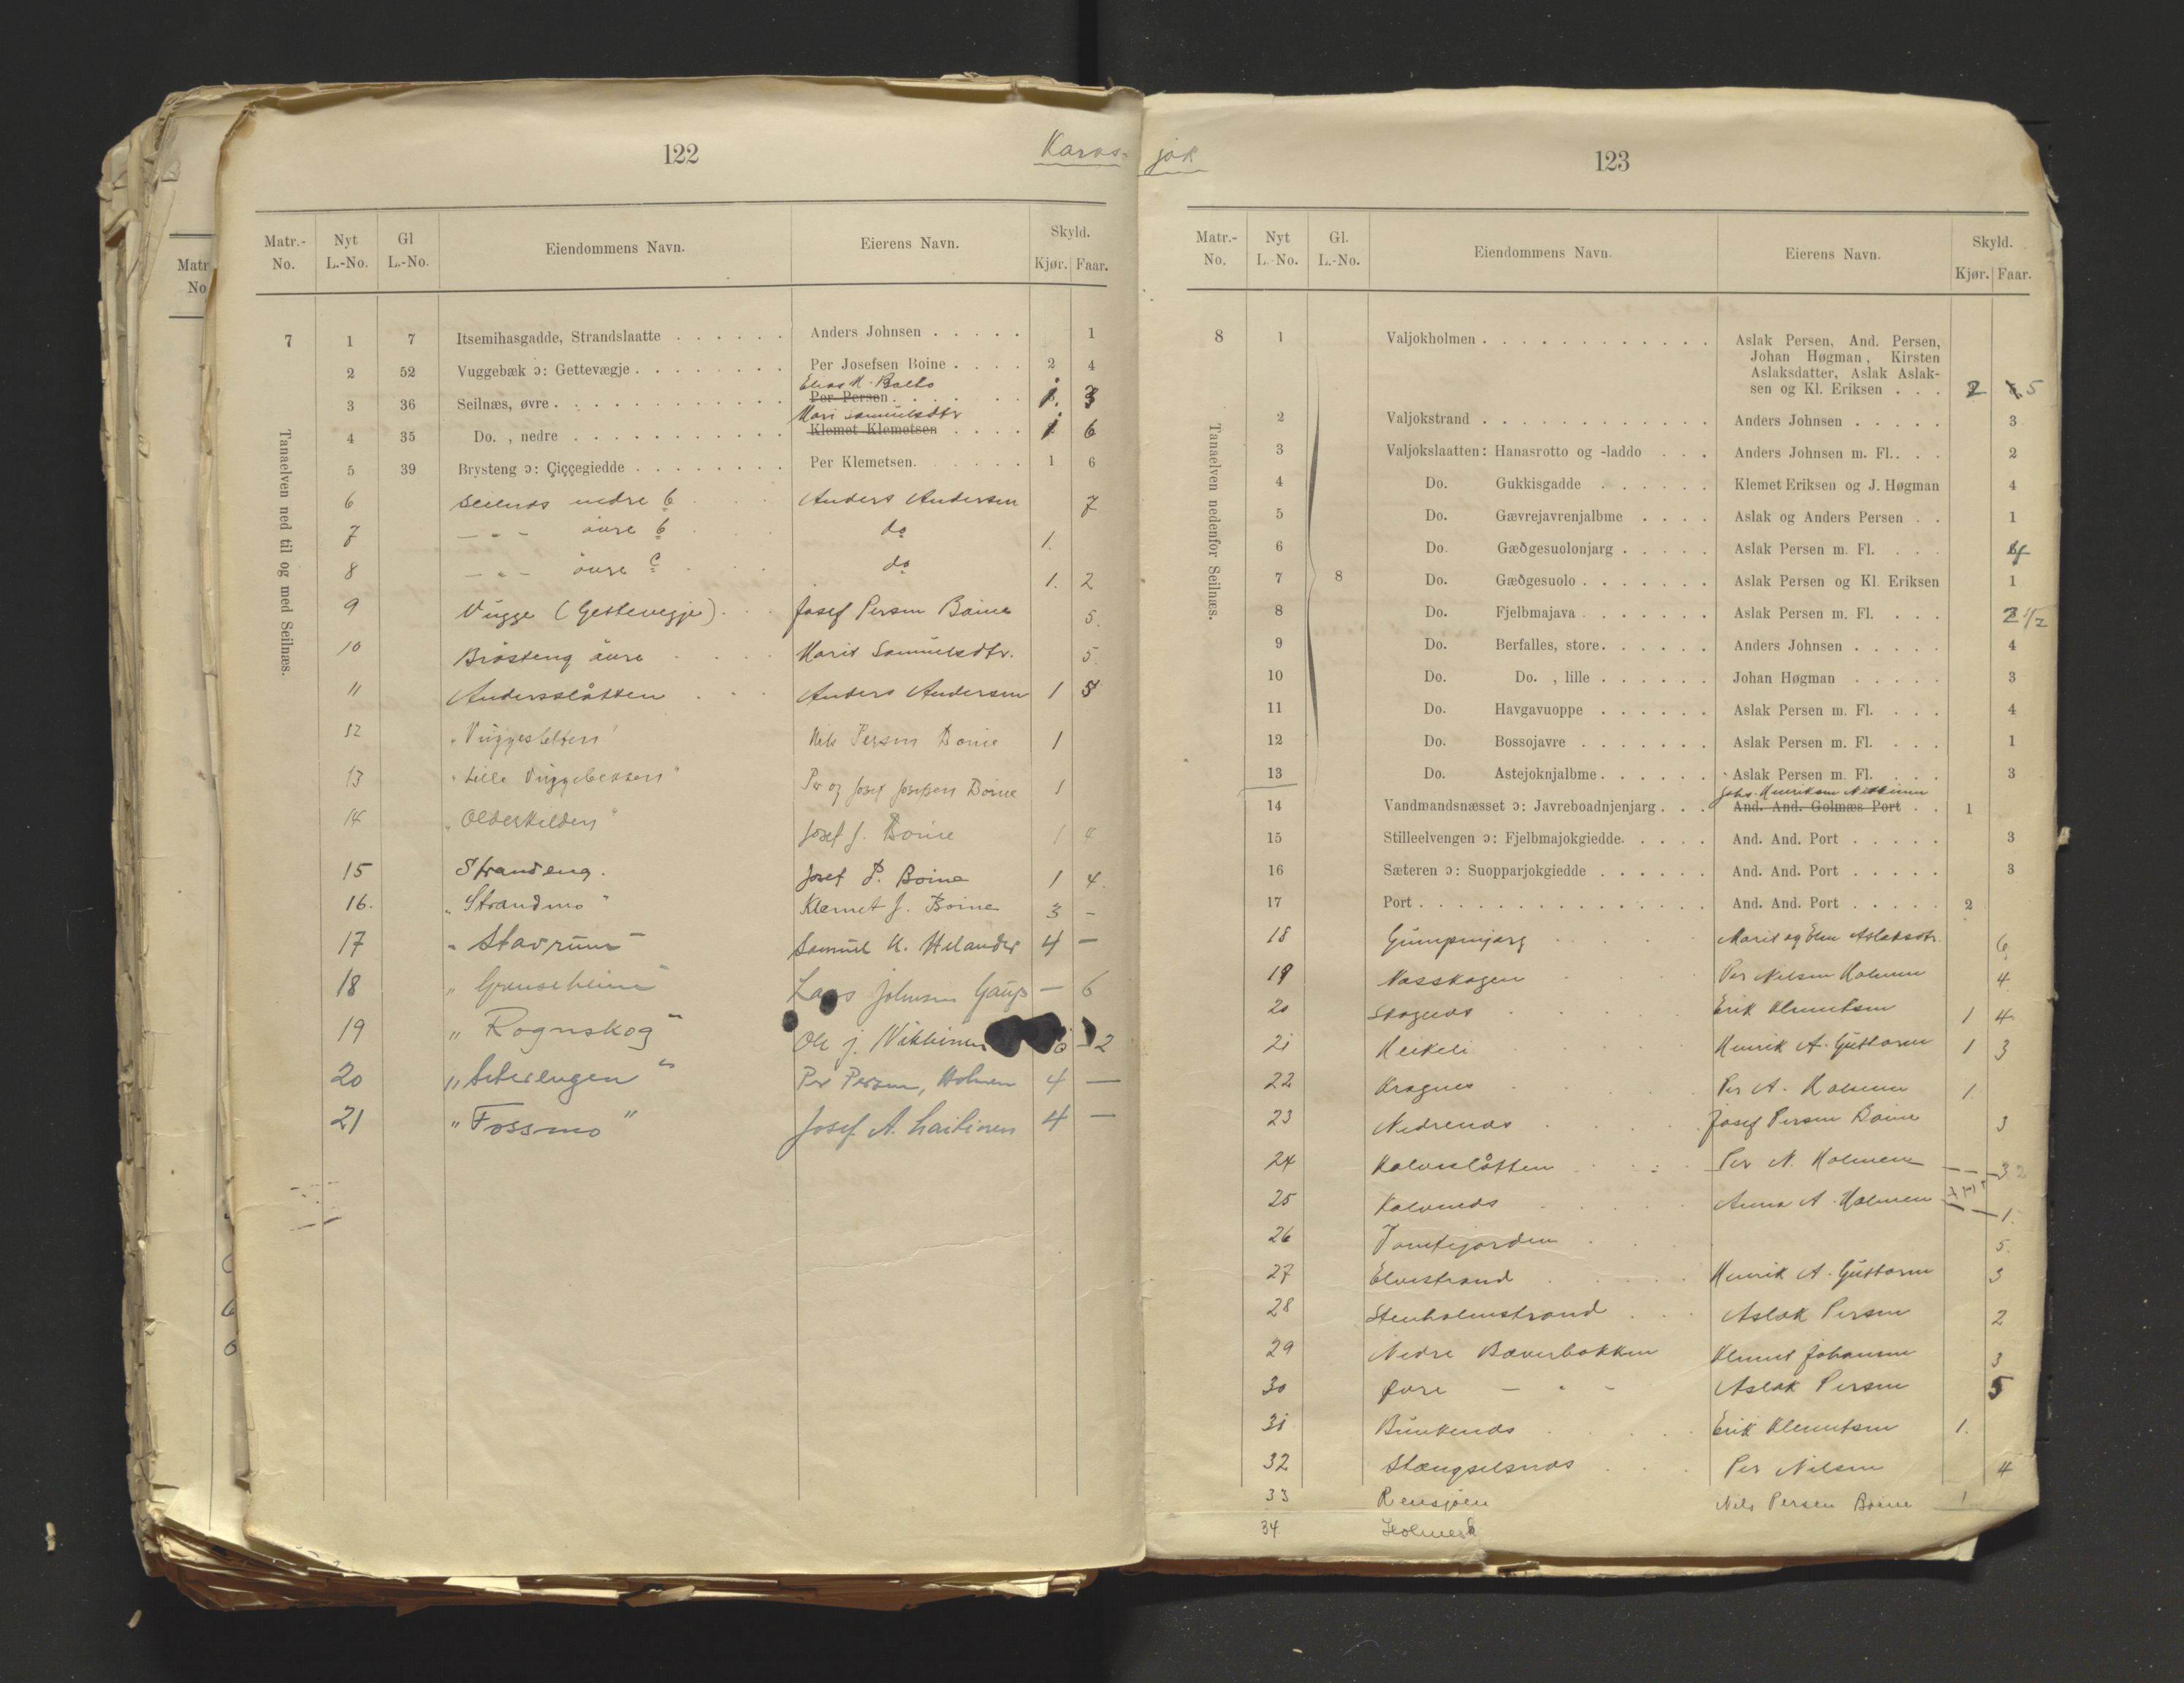 Matr
No
122
Karas-
Matr.-No. Nyt L.-No. Gl L.-No. Eiendommens Navn. Eierens Navn. Skyld. Kjør. Faar.
Tanaelven ned til og med Seilnæs.
7 1 7 Itsemihasgadde, Strandslaatte . . . . . . Anders Johnsen . . . . . 1
2 52 Vuggebæk ɔ: Gettevægje . . . . . . . . Per Josefsen Boine . . . . 2 4
Elias K. Balto
3 36 Seilnæs, øvre . . . . . . . . . . . . Per Persen . . . . . . 1. 3
Mari Samuelsdtr
4 35 Do. , nedre . . . . . . . . . . . Klemet Klemetsen . . . . 1 6
5 39 Brysteng ɔ: Çiççegiedde . . . . . . . . Per Klemetsen. . . . . . 1 6
6 Seilnæs nedre b Anders Andersen 7
7 — " — øvre b do 1.
8 — " — øvre c do 1. 2
9 Vugge (Gettevegje) Josef Persen Boine 5.
10 Brøsteng øvre Marit Samuelsdtr. 5.
11 Andersslåtten Anders Andersen 1 5
12 "Vuggesletten" Nils Persen Boine 1
13 "Lille Vuggebekken" Per og Josef Josefsen Boine 1
14 "Olderkilden" Josef J. Boine 1 4
15 Strandeng. Josef P. Boine 1 4.
16. "Strandmo" Klemet J. Boine 3 –
17 "Stavrum" Samuel K. Helander 4 –
18 " Lars Johnsen Gaup — 6
19 "Rognskog" Ole J. Nikkinen 2
20 Per Persen, Holmen 4 —
21 "Fossmo" Josef A. 4 —
jok
123
Matr.-No. Nyt L.-No. Gl. L.-No. Eiendommens Navn. Eierens Navn. Skyld. Kjør. Faar.
Tanaelven nedenfor Seilnæs.
8 1 Valjokholmen . . . . . . . . . . . . Aslak Persen, And. Persen,
Johan Høgman, Kirsten
Aslaksdatter, Aslak Aslak-
sen og Kl. Eriksen . . . 2 5
2 Valjokstrand . . . . . . . . . . . . Anders Johnsen . . . . . 3
3 Valjokslaatten: Hanasrotto og -laddo . . . Anders Johnsen m. Fl. . . 2
4 Do. Gukkisgadde . . . . . . Klemet Eriksen og J. Høgman 4
5 Do. Gævrejavrenjalbme . . . . Aslak og Anders Persen . . 1
6 Do. Gæðgesuolonjarg . . . . . Aslak Persen m. Fl. . . . 4
7 8 Do. Gæðgesuolo . . . . . . . Aslak Persen og Kl. Eriksen 1
8 Do. Fjelbmajava . . . . . . . Aslak Persen m. Fl. . . . 2 1/2
9 Do. Berfalles, store. . . . . . Anders Johnsen . . . . . 4
10 Do. Do. , lille . . . . . . Johan Høgman . . . . . 3
11 Do. Havgavuoppe . . . . . . Aslak Persen m. Fl. . . . 4
12 Do. Bossojavre . . . . . . . Aslak Persen m. Fl. . . . 1
13 Do. Astejoknjalbme . . . . . . Aslak Persen m. Fl. . . . 3
Johs. Henriksen Nikkinen
14 Vandmandsnæsset ɔ: Javreboadnjenjarg . . . And. And. Golmæs Port . . 1
15 Stilleelvengen ɔ: Fjelbmajokgiedde. . . . . And. And. Port . . . . . 3
16 Sæteren ɔ: Suopparjokgiedde . . . . . . And. And. Port . . . . . 3
17 Port . . . . . . . . . . . . . . . And. And. Port . . . . . 2
18 Gumpenjarg Marit og Elen Aslaksdtr. 6
19 Næsskogen Per Nilsen Holmen 4
20 Skognæs Erik Klemetsen 1 4.
21 Heikeli Henrik A. Guttorm 1 3
22 Kragnes Per A. Holmen 1.
23 Nedrenæs Josef Persen Boine 3
24 Kalveslåtten Per N. Holmen 3
25 Kalvenæs Anna A. Holmen 1.
26 5.
27 Elvestrand Henrik A. Guttorm 3
28 Stenholmstrand Aslak Persen 2
29 Nedre Bæverbakken Klemet Johansen 3
30 Øvre — " — Aslak Persen 5
31 Bunkenæs Erik Klemetsen 1.
32 Stængselsnæs Per Nilsen 4
33 Rensjøen Nils Persen Boine 1
34